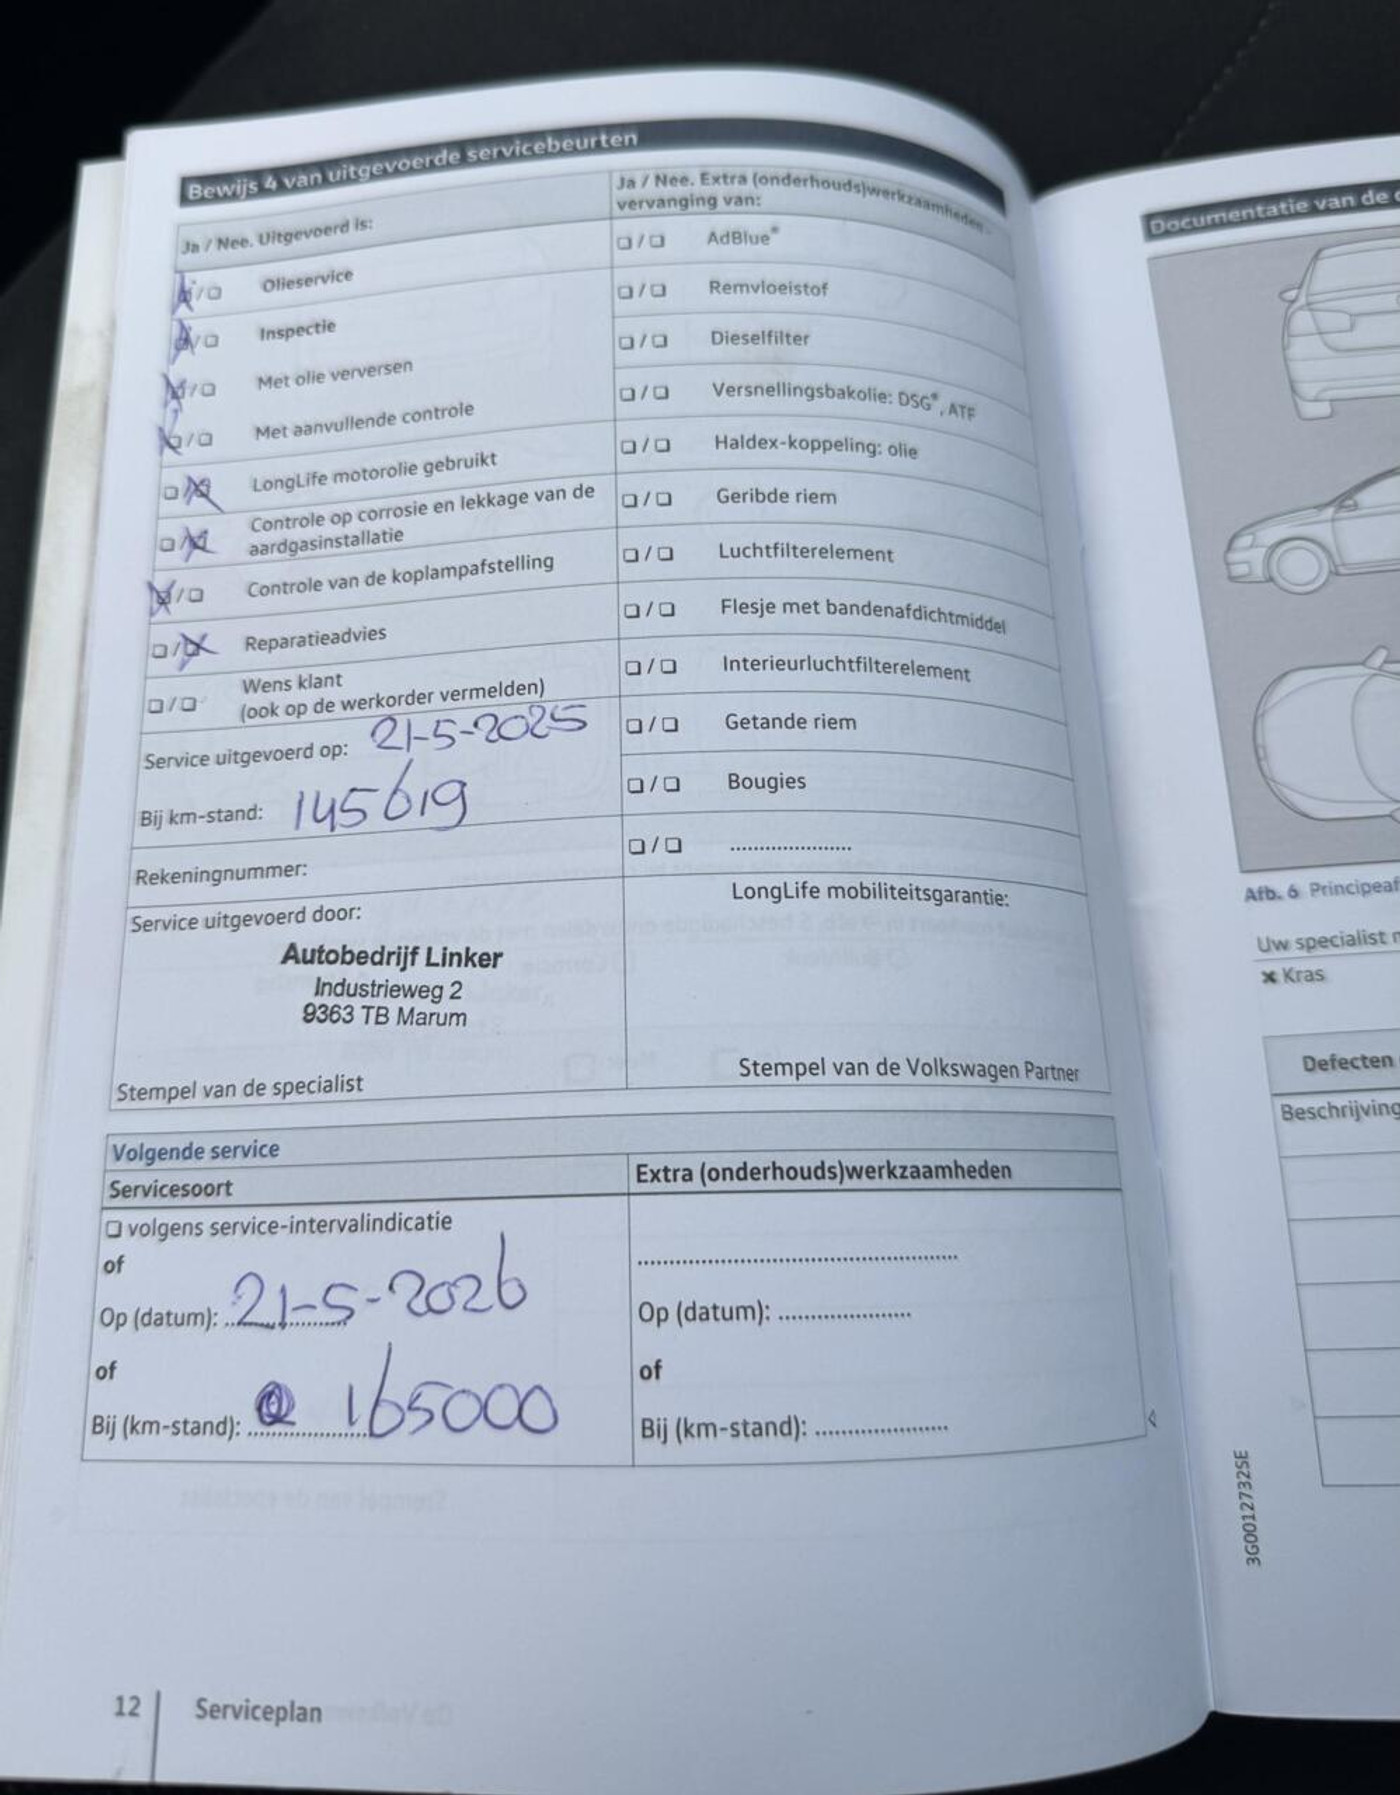 Bewijs 4 van uitgevoerde servicebeurten
Ja / Nee. Uitgevoerd is:
Olieservice
Inspectie
Met olie verversen
Met aanvullende controle
LongLife motorolie gebruikt
Controle op corrosie en lekkage van de
aardgasinstallatie
Controle van de koplampafstelling
Reparatieadvies
Wens klant
(ook op de werkorder vermelden)
Service uitgevoerd op: 21-5-2025
Bij km-stand: 145619
Rekeningnummer:
Service uitgevoerd door:
Autobedrijf Linker
Industrieweg 2
9363 TB Marum
Stempel van de specialist
Ja / Nee. Extra (onderhouds)werkzaamheden
vervanging van:
AdBlue®
Remvloeistof
Dieselfilter
Versnellingsbakolie: DSG®, ATF
Haldex-koppeling: olie
Geribde riem
Luchtfilterelement
Flesje met bandenafdichtmiddel
Interieurluchtfilterelement
Getande riem
Bougies
....................
LongLife mobiliteitsgarantie:
Stempel van de Volkswagen Partner
Volgende service
Servicesoort
volgens service-intervalindicatie
of
Op (datum): 21-5-2026
of
Bij (km-stand): 165000
Extra (onderhouds)werkzaamheden
Op (datum): ....................
of
Bij (km-stand): ....................
12
Serviceplan
Documentatie van de
Afb. 6
Uw specialist
Kras
Defecten
Beschrijving
3G0012732SE